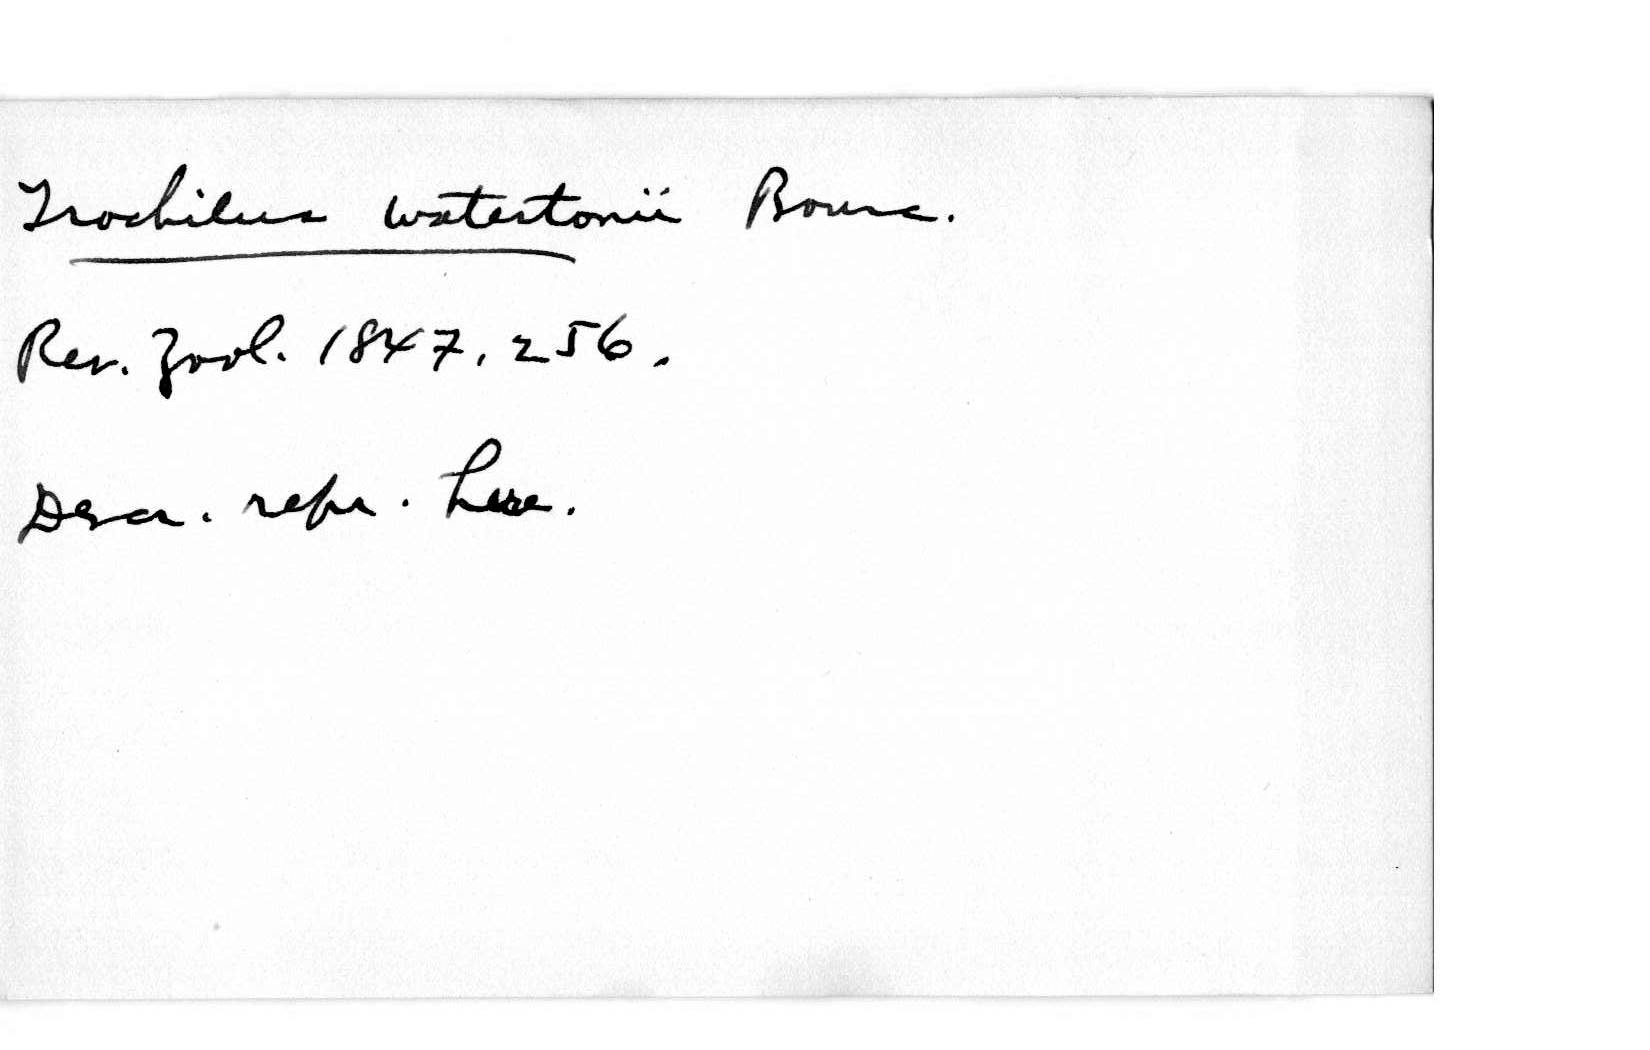 Trochilus watertonii Bourc.
Rev. Zool. 1847, 256.
Descr. repr. here.